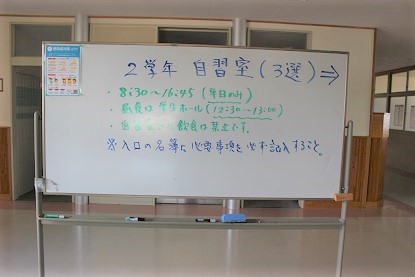 2学年 自習室(3選)⇒
・8:30〜16:45(平日のみ)
・昼食は学生ホール(12:30〜13:00)
・自習室での飲食は禁止です。
※入口の名簿に必要事項を必ず記入すること。